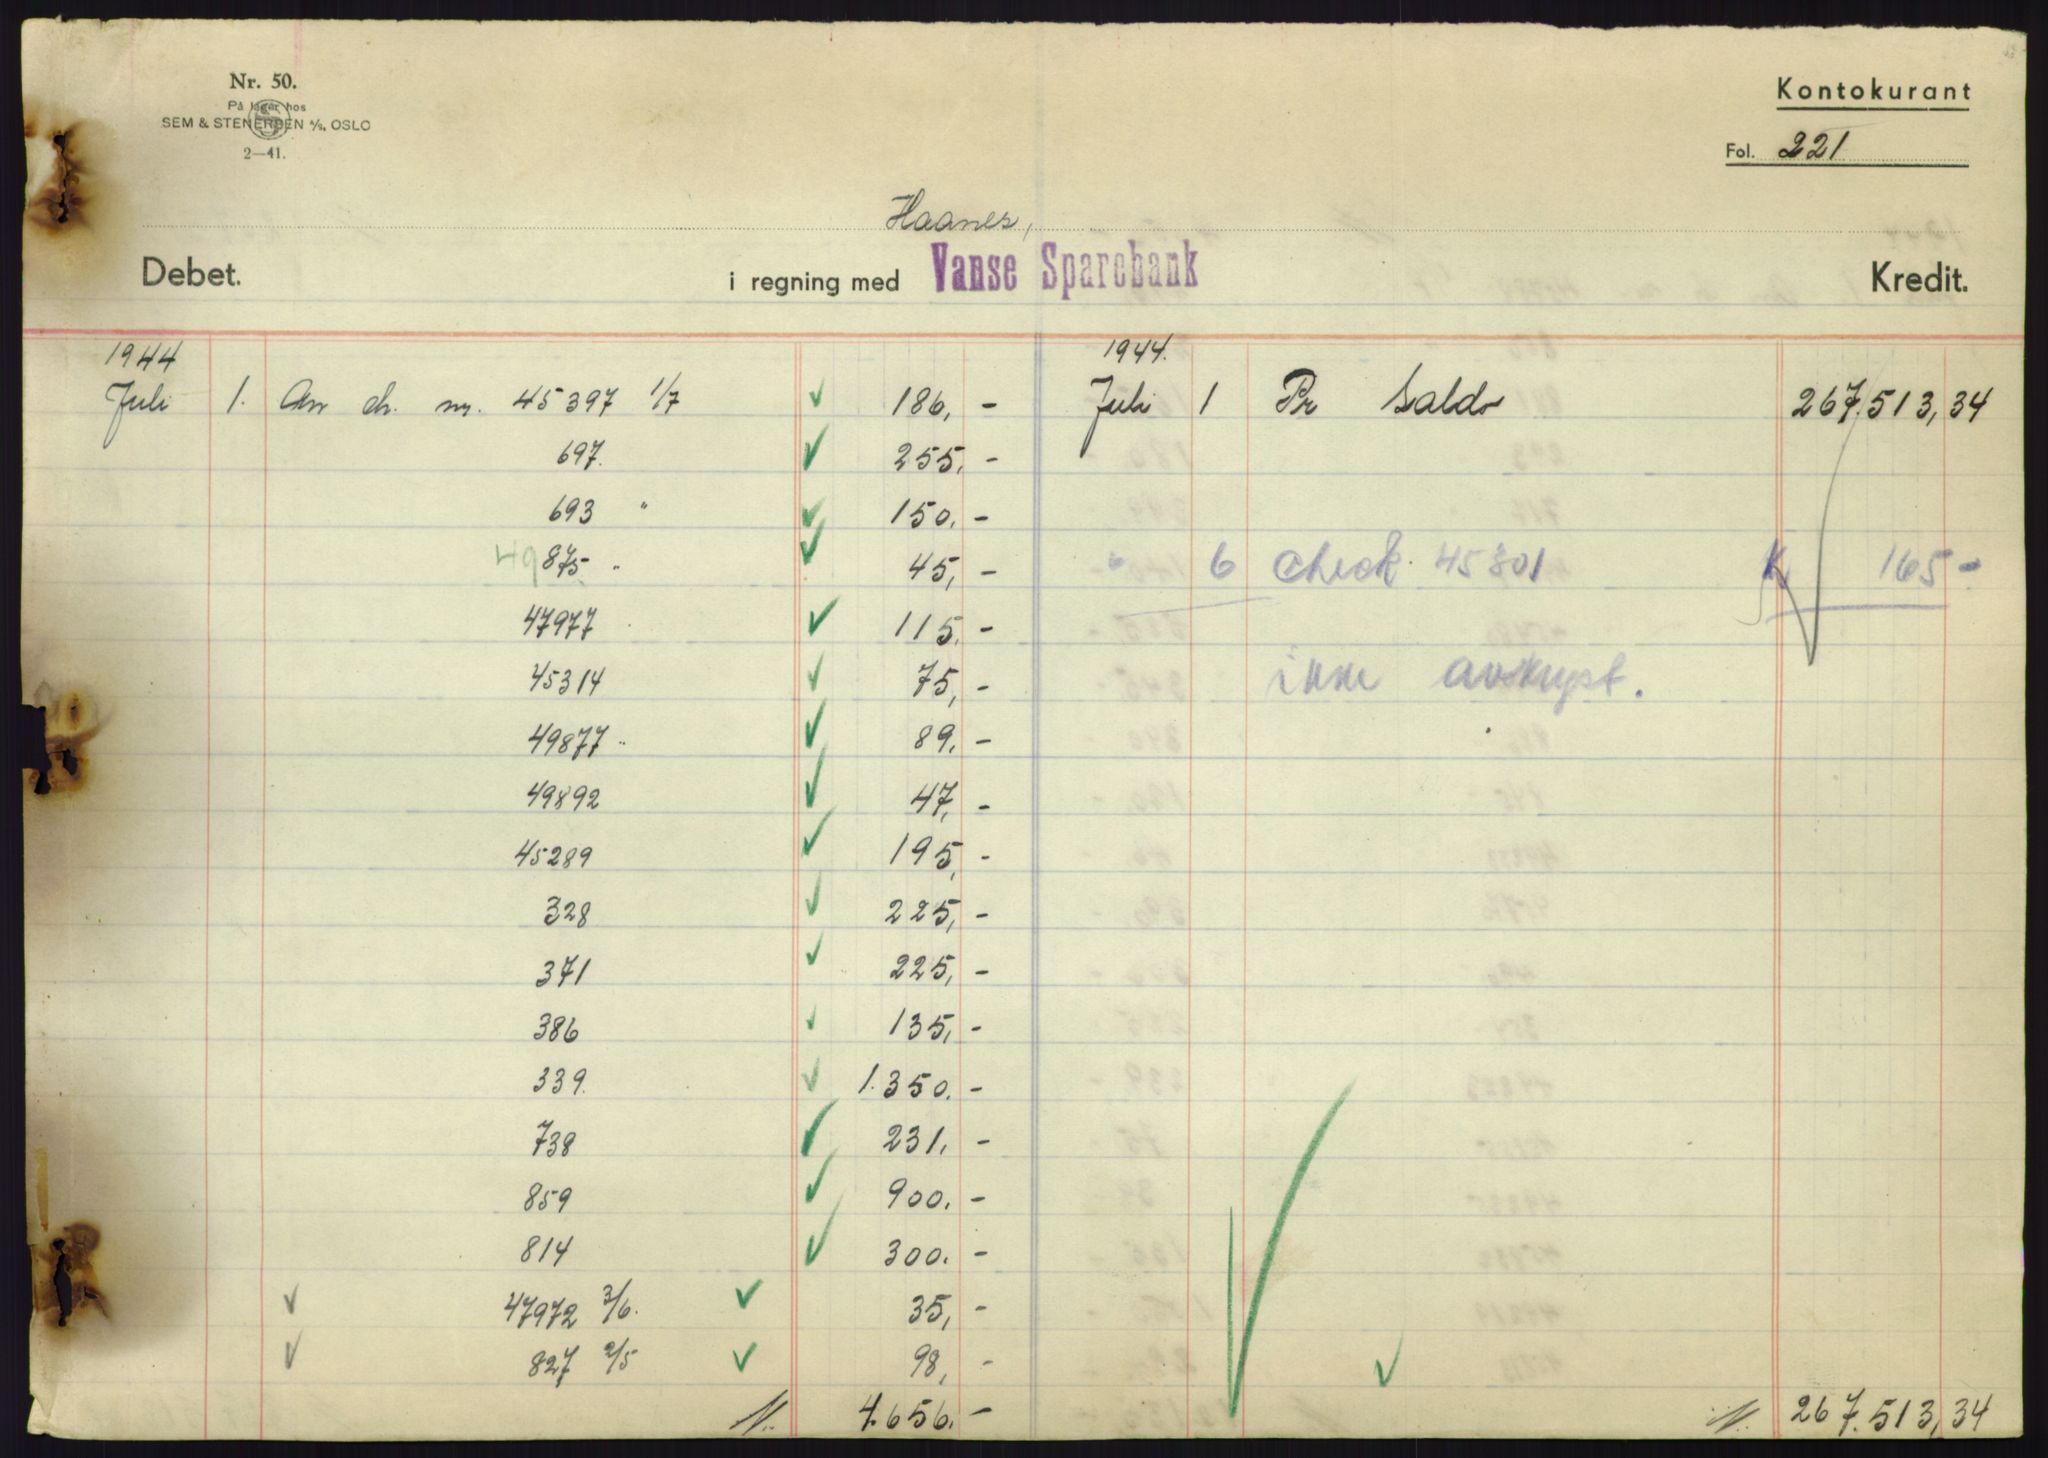 Nr. 50.
På lager hos
SEM & STENERSEN A/S, OSLO
2—41.
Kontokurant
Fol. 221
Haanes,
Debet.
i regning med Vanse Sparebank
Kredit.
1944
Juli 1. An ch. nr. 45397 1/7 ✓ 186, -
697. ✓ 255. -
693 " ✓ 150. -
49875 " ✓ 45, -
47977 ✓ 115. -
45314 ✓ 75, -
49877 " ✓ 89. -
49892 ✓ 47, -
45289 ✓ 195, -
328 ✓ 225, -
371 ✓ 225, -
386 ✓ 135, -
339. ✓ 1.350. -
738 ✓ 231. -
859 ✓ 900. -
814 ✓ 300. -
✓ 47972 3/6. ✓ 35, -
✓ 827 2/5 ✓ 98, -
4.656. -
1944.
Juli 1 Pr Saldo 267.513,34
" 6 check 45301 K 165 -
ikke avskrypt.
✓
267.513,34